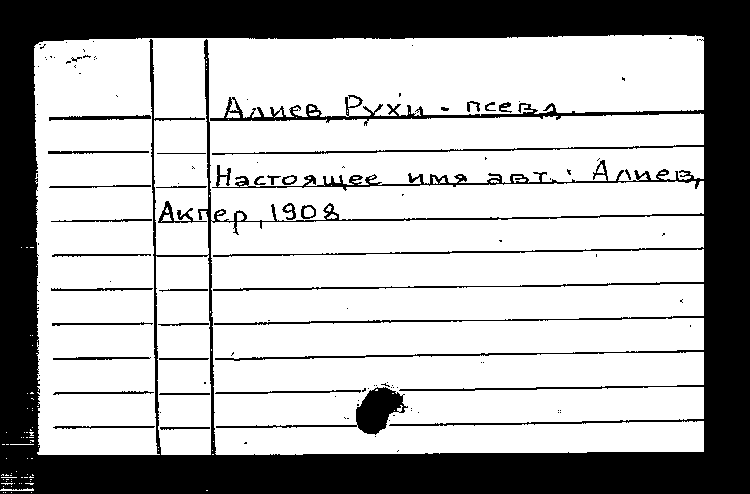 Алиев, Рухи - псевд.
Настоящее имя авт.: Алиев,
Акпер, 1908